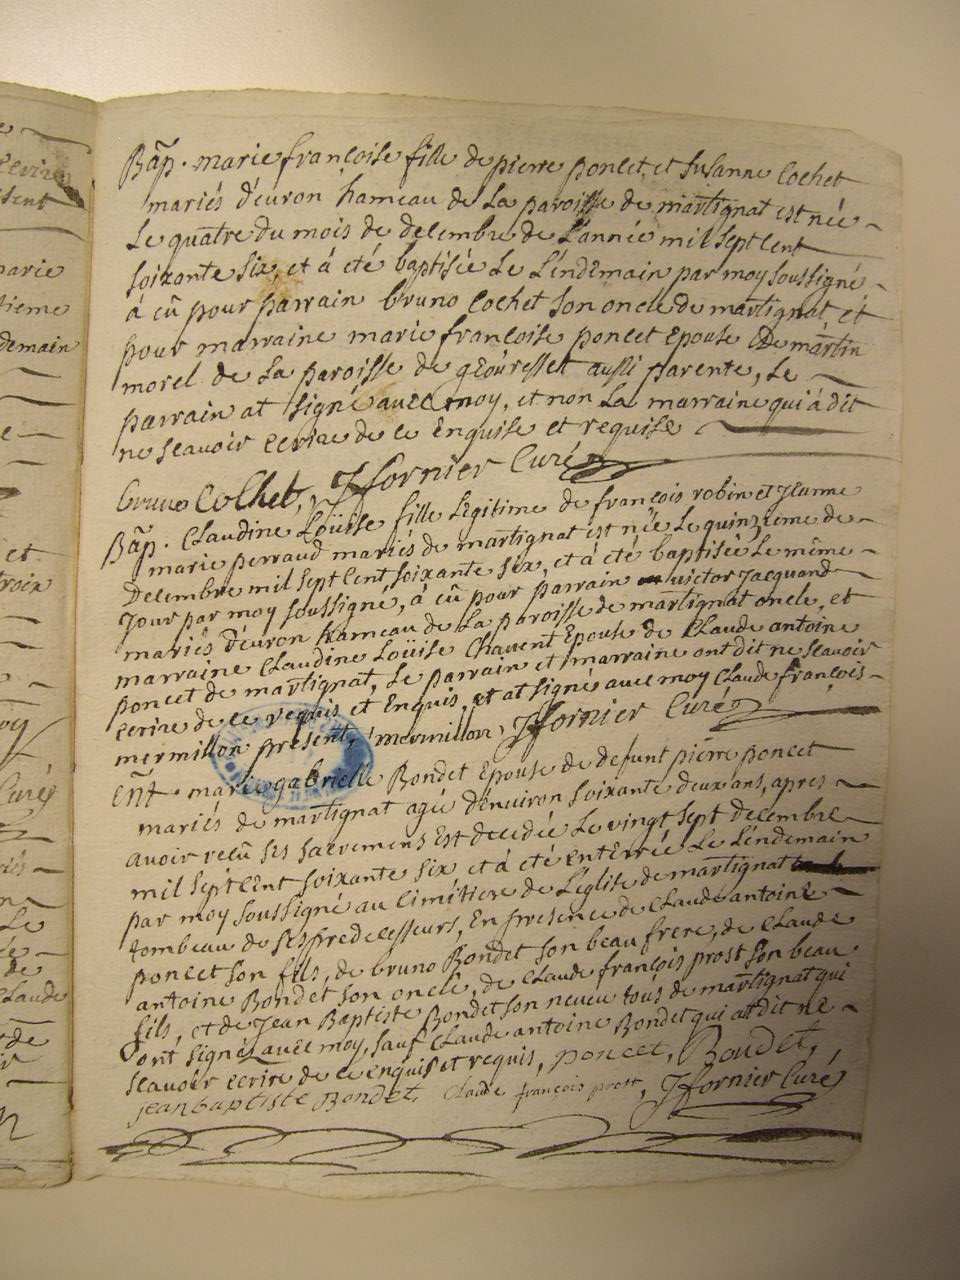 Bãp. marie françoise fille de pierre poncet, et Susanne Cochet
mariés d'évron hameau de La paroisse de martignat est née
Le quatre du mois de decembre de L'année mil sept cent
soixante six, et á eté baptisée Le Lendemain par moy soussigné
á eü pour parrain bruno Cochet son oncle de martignat et
pour marraine marie françoise poncet Epouse de martin
morel de La paroisse de aussi parente, Le
parrain at signé avec moy, et non La marraine qui á dit
ne scavoir ecrire de ce Enquise et requise
bruno Cochet, Jfornier Curé
Bãp. Claudine Loüise fille Légitime de françois robin et Jeanne
marie perraud mariés de martignat est née Le quinzieme de
decembre mil sept cent soixante six, et á eté baptisée, Le même
Jour par moy soussigné, á eü pour parrain victor Jacquand
mariés d'évron hameau de La paroisse de martignat oncle, et
marraine Claudine Loüise Epouse de Claude antoine
poncet de martignat, Le parrain et marraine ont dit ne scavoir
ecrire de ce requis et Enquis, et at signé avec moy Claude françois
mermillon present, mermillon, Jfornier Curé
Ent. marie gabrielle Bondet Epouse de defunt pierre poncet
mariés de martignat agée d'énviron soixante deux ans, apres
avoir recü ses sacremens est decedée Le vingt sept decembre
mil sept cent soixante six et á eté enterrée Le Lendemain
par moy soussigné au Cimitiere de L'eglise de martignat
tombeau de ses predecesseurs, En presence de Claude antoine
poncet son fils, de bruno Bondet son beau frere, de Claude
antoine Bondet son oncle, de Claude françois prost son beau
fils, et de Jean Baptiste Bondet son neveu toús de martignat qui
ont signés avec moy, sauf Claude antoine Bondet qui at dit ne
scavoir ecrire de ce enquis et requis, poncet, Bondet,
jean baptiste Bondet, Claude françois prost, Jfornier Curé